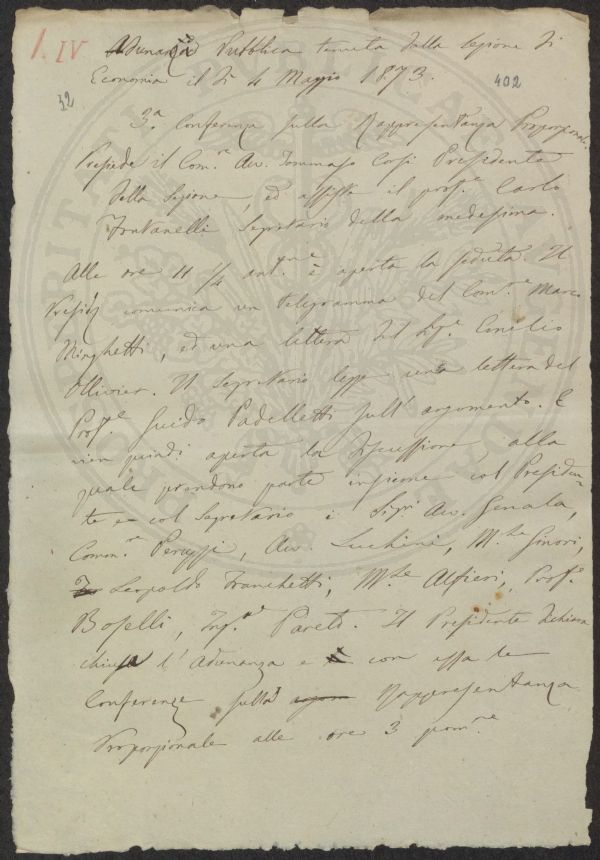 1. IV
Adunanza Pubblica tenuta dalla sezione di
Economia il dì 4 Maggio 1873.
32
402
3.a Conferenza sulla Rappresentanza Proporzionale.
Presiede il Com.re Av. Tommaso Corsi Presidente
della Sezione, ed assiste il prof.e Carlo
Fontanelli Segretario della medesima.
Alle ore 11 1/4 ant.ne è aperta la seduta. Il
Presid. comunica un telegramma del Com.e Marco
Minghetti, ed una lettera del Sig.e Emilio
Ollivier. Il Segretario legge una lettera del
Prof.e Guido Padelletti sull' argomento. E
vien quindi aperta la discussione, alla
quale prendono parte insieme col Presiden-
te e col Segretario i Sigri Av. Genala,
Comm.re Peruzzi, Avv. Luchini, M.se Ginori,
Leopoldo Franchetti, M.se Alfieri, Prof.e
Boselli, Ing.re Pareto. Il Presidente dichiara
chiusa l'Adunanza e con essa le
Conferenze sulla Rappresentanza
Proporzionale alle ore 3 pom.e